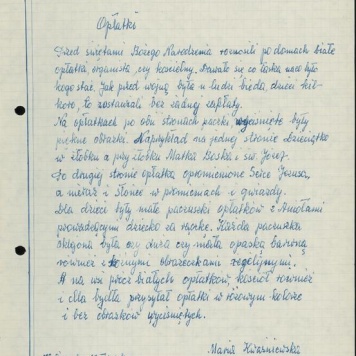 Opłatki
Przed świętami Bożego Narodzenia roznosił po domach białe
opłatki organista, czy kościelny. Dawało się co łaska, na co było
kogo stać. Jak przed wojną była u ludzi bieda, dzieci
to zostawiali bez żadnej zapłaty.
Na opłatkach po obu stronach paczki wyciśnięte były
piękne obrazki. Naprzykład na jednej stronie Dzieciątko
w żłobku a przy żłobku Matka Boska i św. Józef.
Po drugiej stronie opłatka opromienione Serce Jezusa,
a nieraz i słońce w promieniach i gwiazdy.
Dla dzieci były małe paczuszki opłatków z Aniołami
prowadzącymi dziecko za rączkę. Każda paczuszka
sklejona była czy duża czy mała opaską barwną
również z obrazeczkami religijnymi.
A na wsi prócz białych opłatków kościół również
i dla bydła przysyłał opłatki w różowym kolorze
i bez obrazków wyciśniętych.
Maria